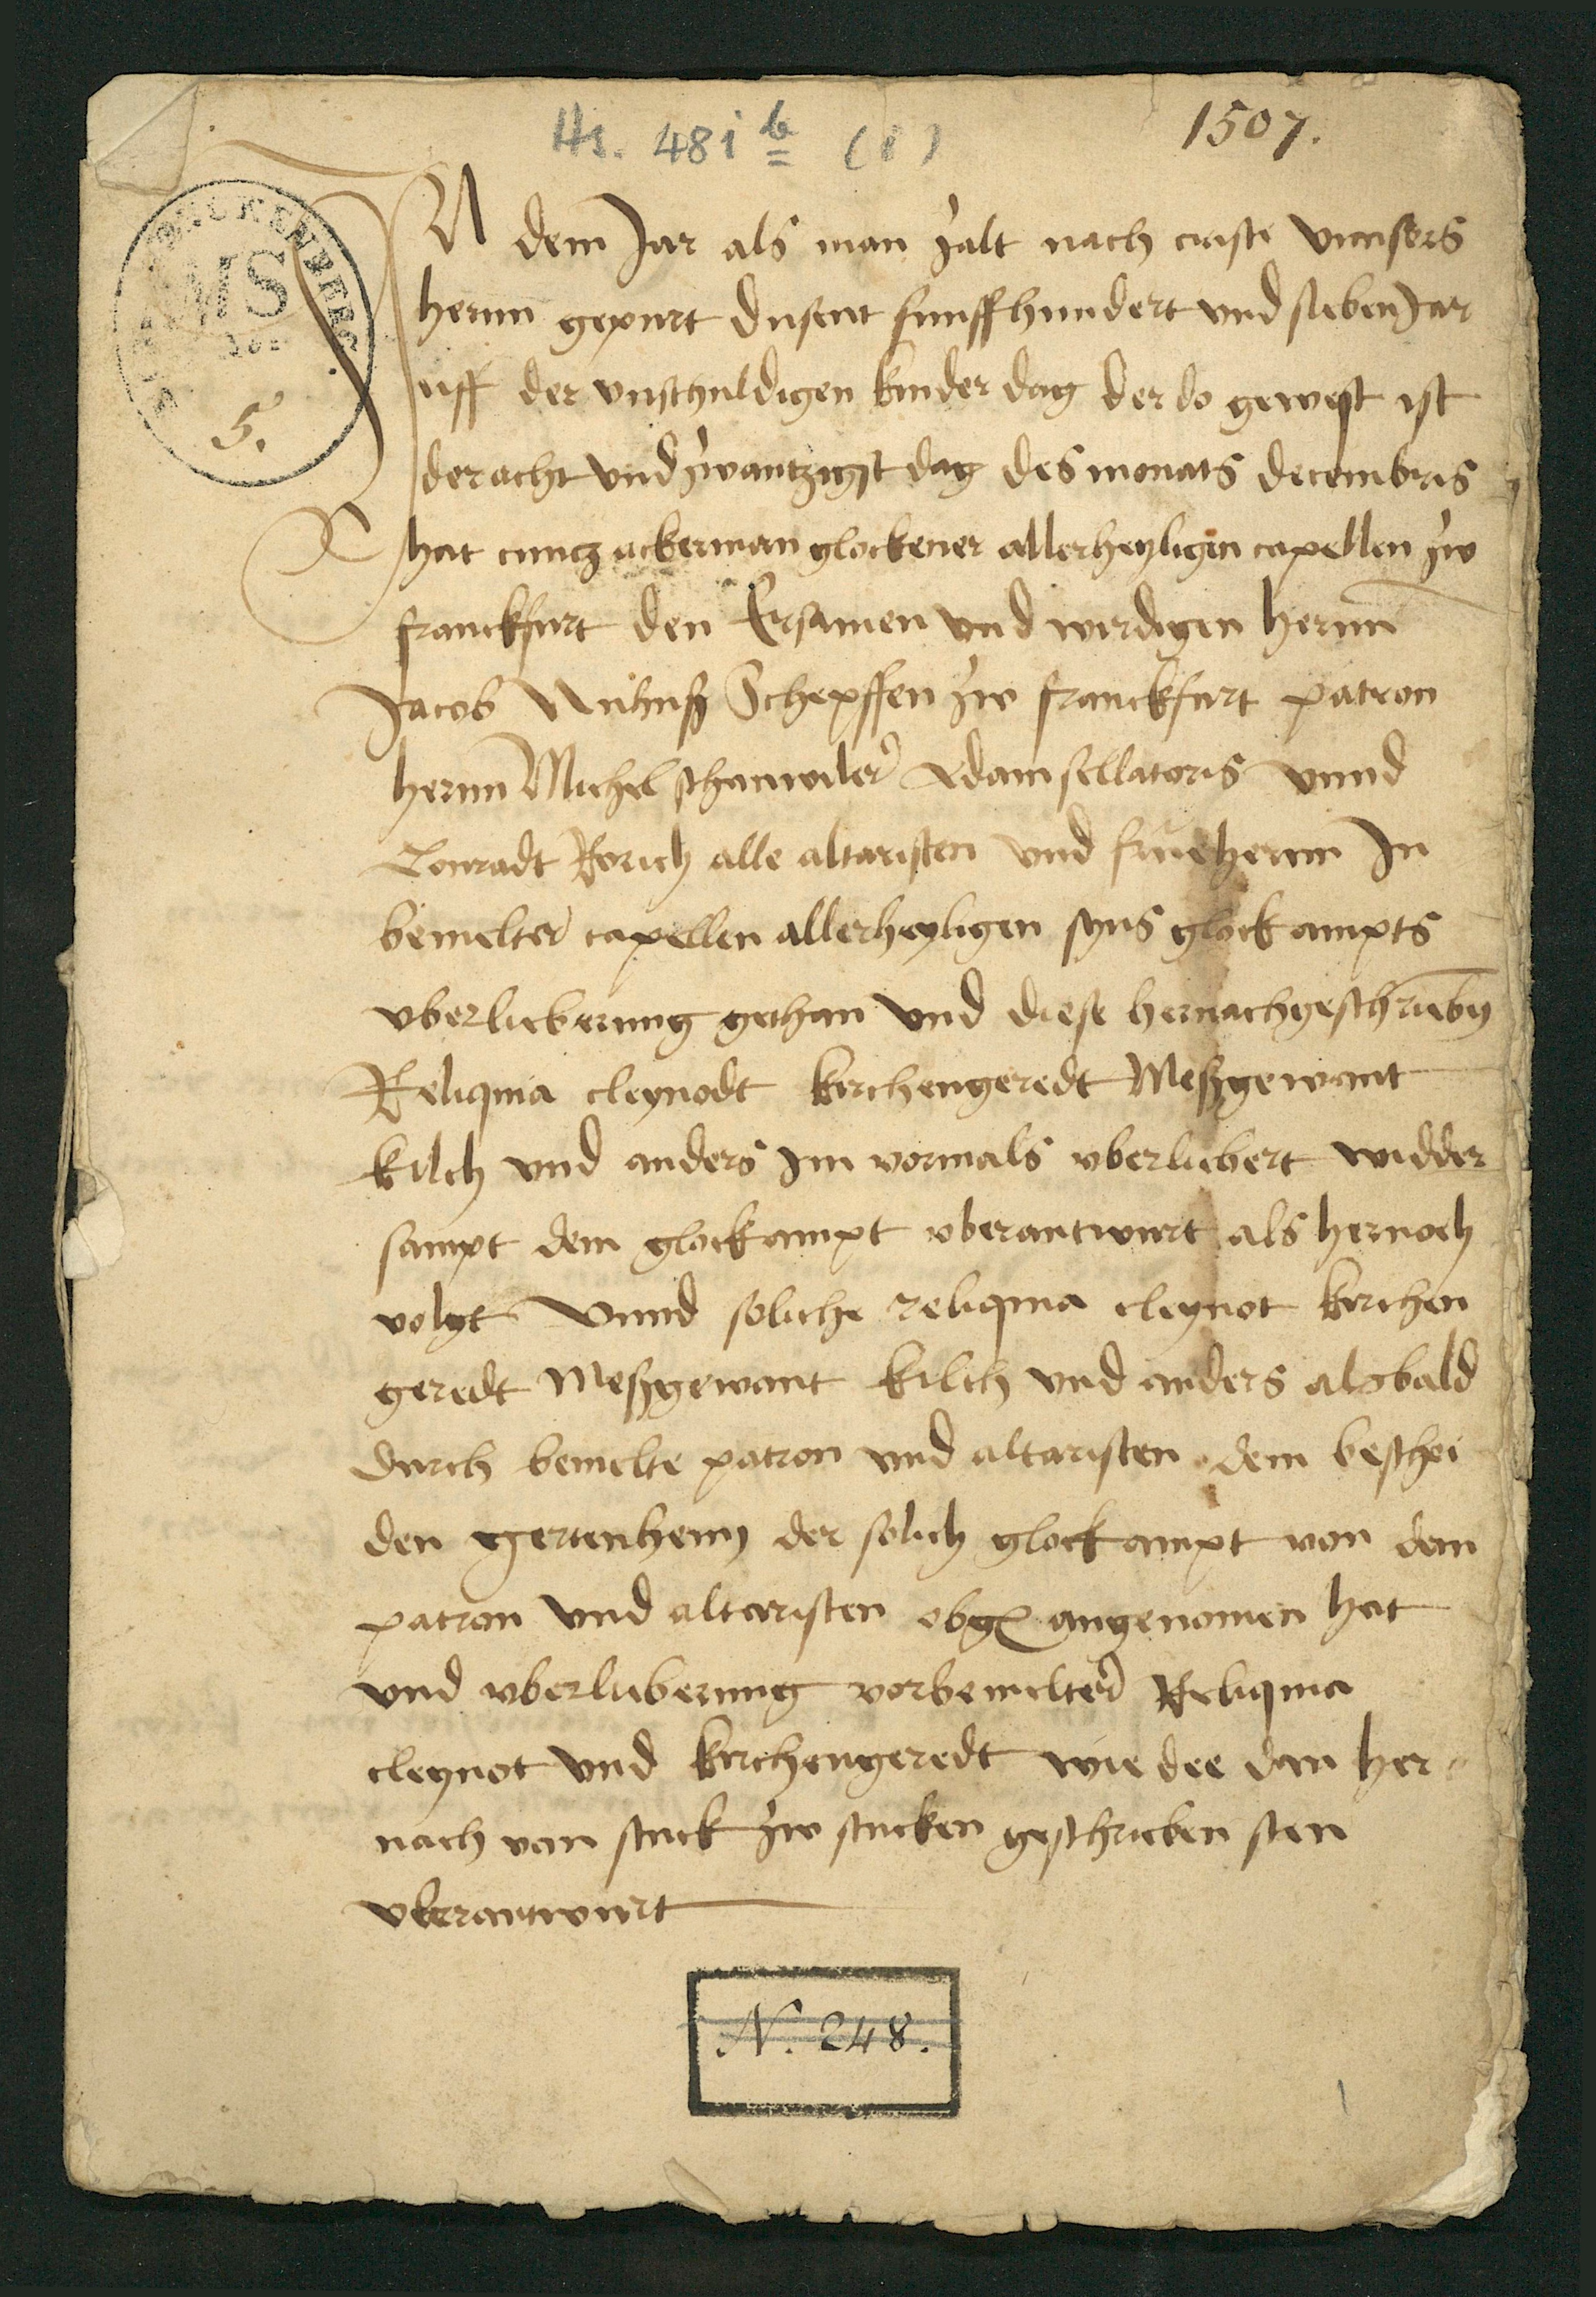 Hs. 481 b (1)
1507.
MS
5.
IN dem Jar als man zalt nach cristi vnnsers
hernn gepurt dusent funffhundert vnd sieben Jar
uff der vnschuldigen kinder dag der do gewest ist
der acht vnd zwantzigst dag des monats decembris
hat cuntz ackerman glockener allerheyligen capellen zw
franckfurt den Ersamen vnd wirdigen hernn
Jacob Nuhuß Schepffen zw franckfurt patron
hernn Michel schanwiler Adam sellatoris vnnd
Conradt Rorich alle altaristen vnd frueherrn In
bemelter capellen allerheyligen syns glockampts
vberlieberung gethan vnd diese hernachgeschrieben
Reliquia cleynodt kirchengeredt Meßgewant
kilch vnd anders im vormals vberliebert widder
sampt dem glockampt vberantwurt als hernoch
volgt Vnnd soliche reliquia cleynot kirchen
geredt Meßgewant kilch vnd anders alsbald
durch bemelte patron vnd altaristen dem beschei
den gertenheny der solich glockampt von dem
patron vnd altaristen obg angenomen hat
vnd vberlieberung vorbemelter Reliquia
cleynot vnd kirchengeredt wie dee dan her
nach von stuck zw stucken geschrieben sten
vberantwurt
N. 248.